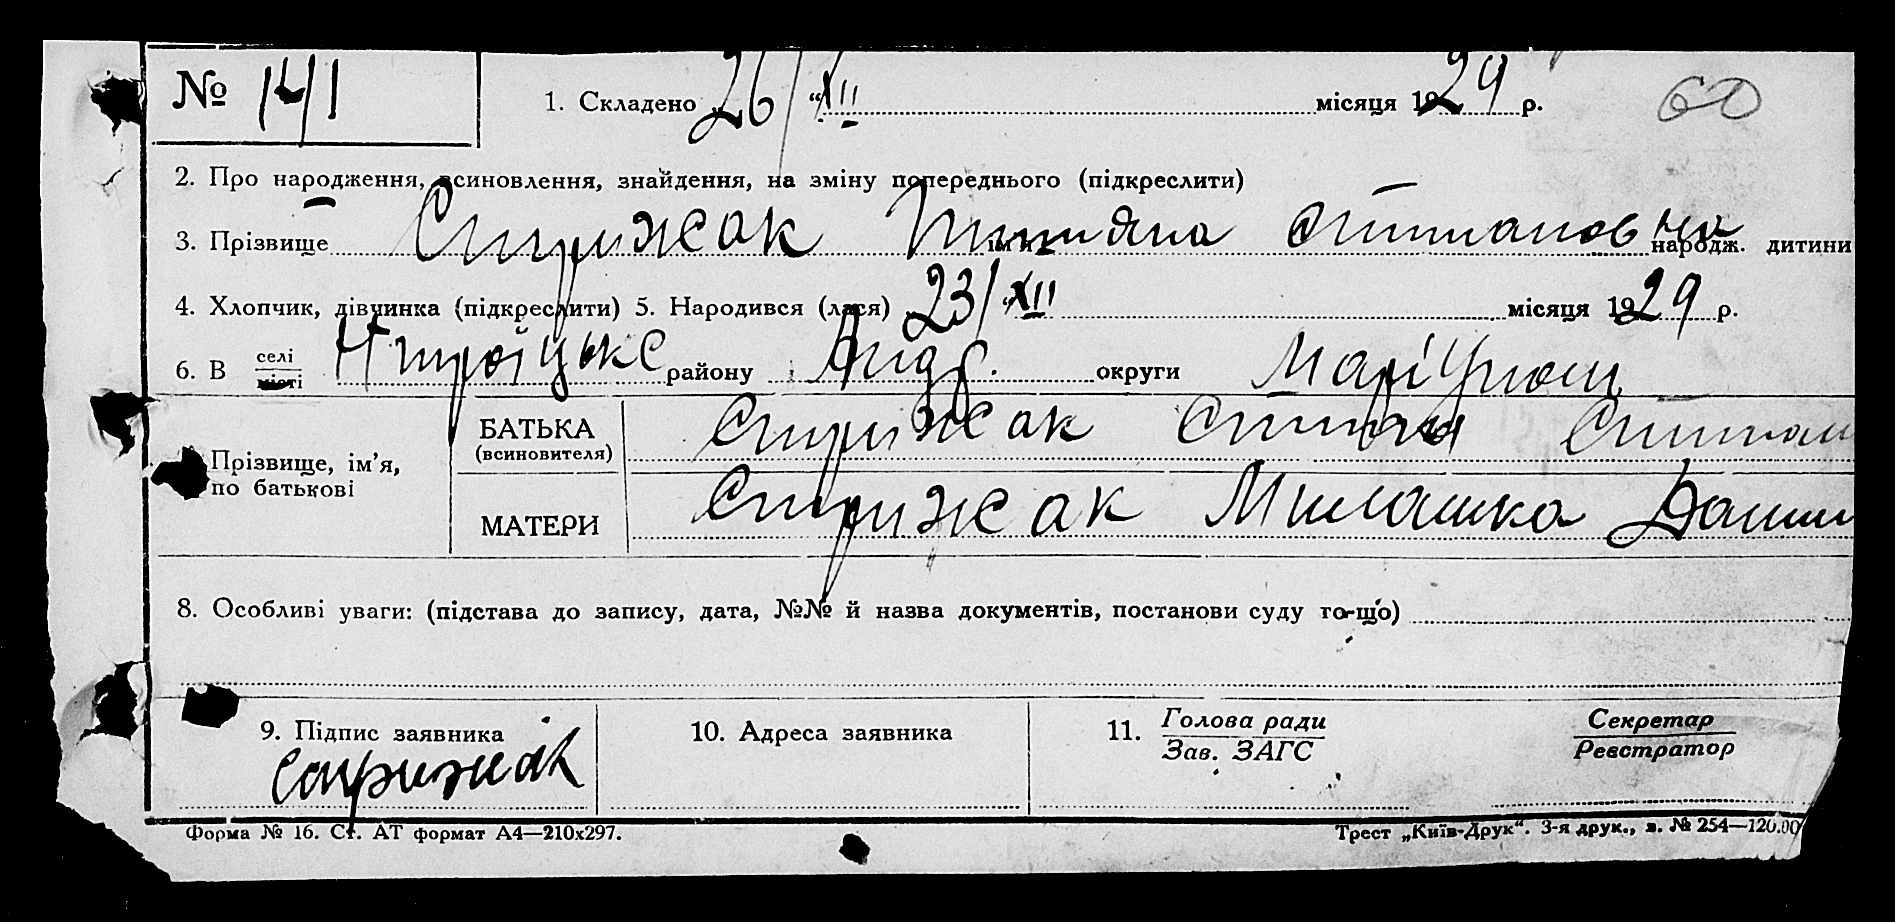 № 141 1. Складено 26/XII місяця 1929 р. 60
2. Про народження, всиновлення, знайдення, на зміну попереднього (підкреслити)
3. Прізвище Стрижак Титяна Степановна народж. дитини
4. Хлопчик, дівчинка (підкреслити) 5. Народився (лася) 23/XII місяця 1929 р.
6. В селі місті Нтроїцьке району Андр. округи Маріуполь
Прізвище, ім’я, по батькові
БАТЬКА (всиновителя) Стрижак Степан Степан
МАТЕРИ Стрижак Милашка Данил
8. Особливі уваги: (підстава до запису, дата, №№ й назва документів, постанови суду то-що)
9. Підпис заявника 10. Адреса заявника 11. Голова ради Зав. ЗАГС Секретар Реєстратор
Стрижак
Форма № 16. Ст. АТ формат А4—210х297. Трест „Київ-Друк“. 3-я друк., з. № 254—120.00